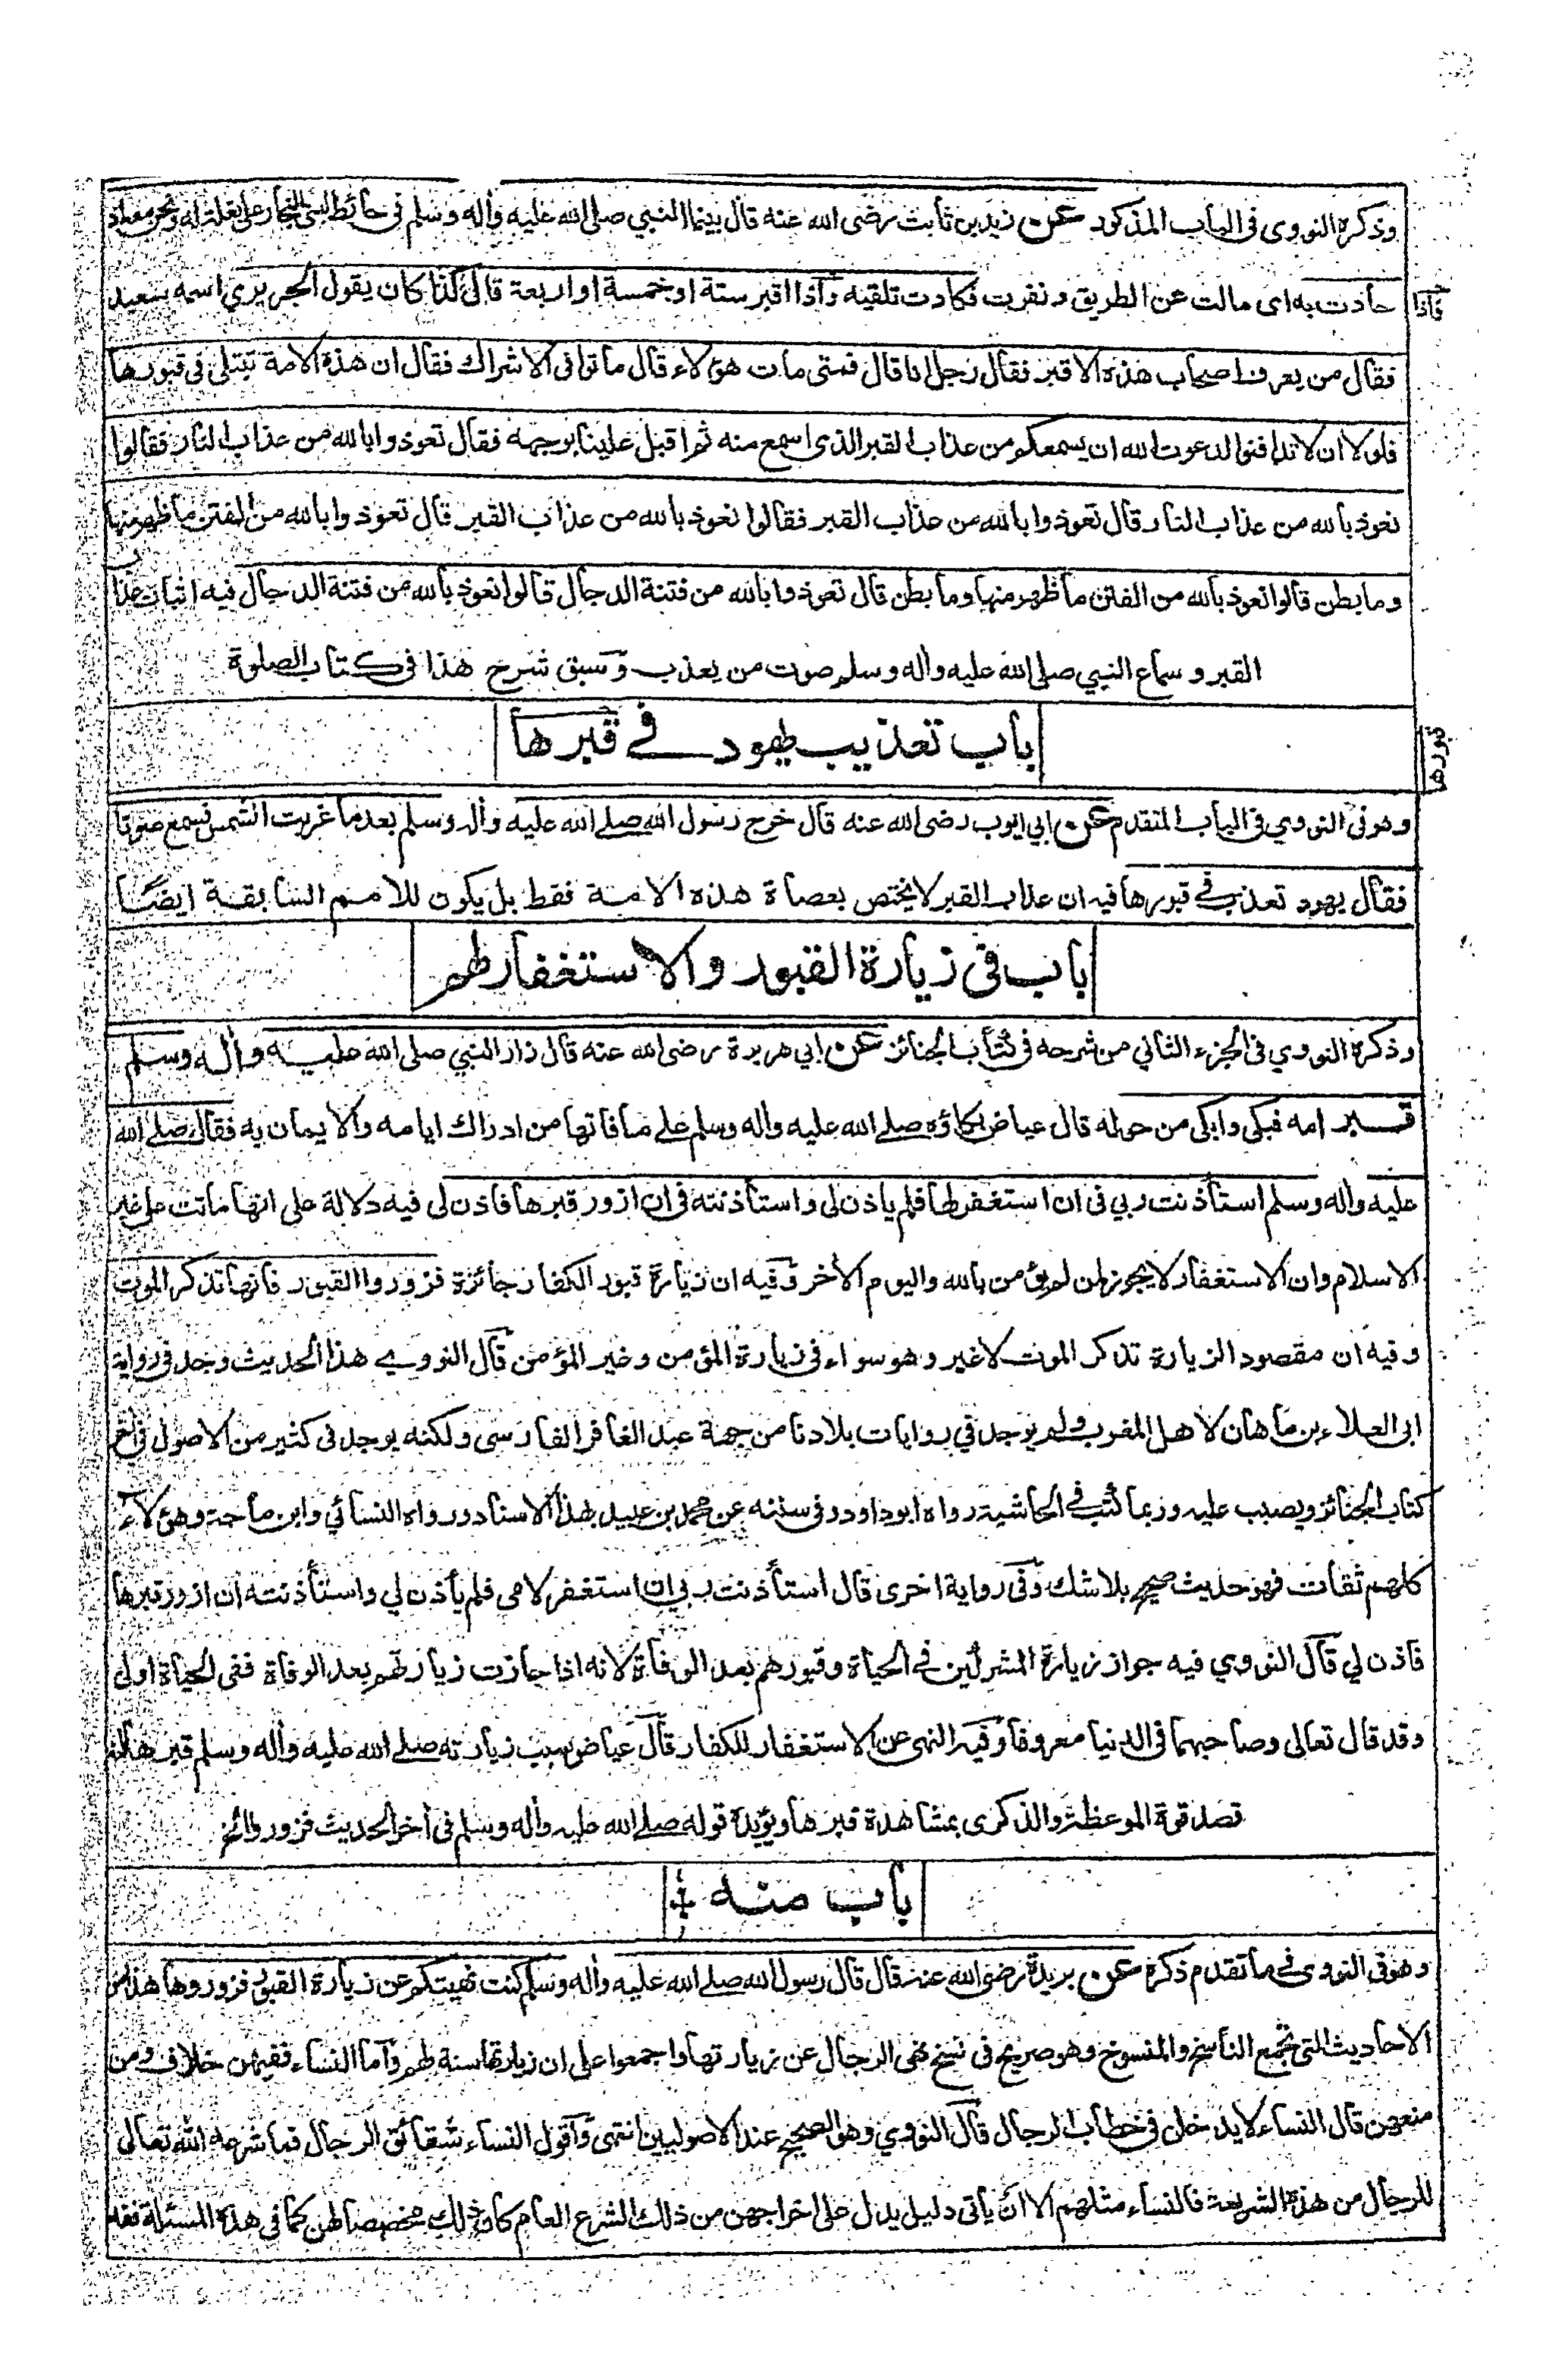 وذكره النووى فى الباب المذكور عن زيد بن ثابت رضى الله عنه قال بينما النبي صلى الله عليه وأله وسلم فى حائط لبنى النجار على بغلة له ونحن معه اذ
حادت به اى مالت عن الطريق ونفرت فكادت تلقيه وأذا اقبر ستة او خمسة او اربعة قال كذا كان يقول الجريري اسمه سعيد
فاذا
فقال من يعرف اصحاب هذه الاقبر فقال رجل انا قال فمتى مات هؤلاء قال ماتوا فى الاشراك فقال ان هذه الامة تبتلى فى قبورها
فلولا ان لا تدافنوا لدعوت الله ان يسمعكم من عذاب القبر الذى اسمع منه ثم اقبل علينا بوجهه فقال تعوذوا بالله من عذاب النار فقالوا
نعوذ بالله من عذاب النار قال تعوذوا بالله من عذاب القبر فقالوا نعوذ بالله من عذاب القبر قال تعوذوا بالله من الفتن ما ظهر منها
وما بطن قالوا نعوذ بالله من الفتن ما ظهر منها وما بطن قال تعوذوا بالله من فتنة الدجال قالوا نعوذ بالله من فتنة الدجال فيه اثبات عذاب
القبر وسماع النبي صلى الله عليه واله وسلم صوت من يعذب وسبق شرح هذا فى كتاب الصلوة
باب تعذيب يهود فے قبرها
قبورها
وهو فى النووي فى الباب المتقدم عن ابي ايوب رضى الله عنه قال خرج رسول الله صلے الله عليه وأله وسلم بعد ما غربت الشمس فسمع صوتا
فقال يهود تعذب فے قبورها فيه ان عذاب القبر لا يختص بعصاة هذه الامة فقط بل يكون للامم السابقة ايضًا
باب فى زيارة القبور والاستغفار لهم
وذكره النووي فى الجزء الثاني من شرحه فى كتاب الجنائز عن ابي هريرة رضى الله عنه قال زار النبي صلى الله عليه وأله وسلم
قبر امه فبكى وابكى من حوله قال عياض بكاؤه صلے الله عليه واله وسلم على ما فاتها من ادراك ايامه والايمان به فقال صلے الله
عليه واله وسلم استأذنت ربي فى ان استغفر لها فلم ياذن لى واستأذنته فى ان ازور قبرها فاذن لى فيه دلالة على انها ماتت على غير
الاسلام وان الاستغفار لا يجوز لمن لم يؤمن بالله واليوم الأخر وفيه ان زيارة قبور الكفار جائزة فزوروا القبور فانها تذكر الموت
وفيه ان مقصود الزيارة تذكر الموت لا غير وهو سواء فى زيارة المؤمن وغير المؤمن قال النووے هذا الحديث وجد فى رواية
ابى العلاء بن ماهان لاهل المغرب ولم يوجد في روايات بلادنا من جهة عبد الغافر الفارسى ولكنه يوجد فى كثير من الاصول فى اخر
كتاب الجنائز ويضبب عليه وربما كتب فے الحاشية رواه ابو داود فى سننه عن محمد بن عبيد بهذا الاسناد ورواه النسائي وابن ماجة وهؤلاء
كلهم ثقات فهو حديث صحيح بلا شك وفى رواية اخرى قال استأذنت ربي ان استغفر لامي فلم يأذن لي واستأذنته ان ازور قبرها
فاذن لي قال النووي فيه جواز زيارة المشركين فے الحياة وقبورهم بعد الوفاة لانه اذا جازت زيارتهم بعد الوفاة ففى الحياة اولى
وقد قال تعالى وصاحبهما فى الدنيا معروفا وفيه النهى عن الاستغفار للكفار قال عياض سبب زيارته صلے الله عليه وأله وسلم قبرها انه
قصد قوة الموعظة والذكرى بمشاهدة قبرها ويؤيده قوله صلے الله عليه وأله وسلم فى أخر الحديث فزوروا الخ
باب منه
وهو فى النووى فے ما تقدم ذكره عن بريدة رضى الله عنه قال قال رسول الله صلے الله عليه وأله وسلم كنت نهيتكم عن زيارة القبور فزوروها هذا من
الاحاديث التى تجمع الناسخ والمنسوخ وهو صريح فى نسخ نهى الرجال عن زيارتها واجمعوا على ان زيارتها سنة لهم وأما النساء ففيهن خلاف ومن
منعهن قال النساء لا يدخلن فى خطاب الرجال قال النووي وهو الصحيح عند الاصوليين انتهى وأقول النساء شقائق الرجال فيما شرعه الله تعالى
للرجال من هذه الشريعة فالنساء مثلهم الا ان يأتى دليل يدل على اخراجهن من ذلك الشرع العام كان ذلك مخصصا لهن كما فى هذه المسئلة فقد